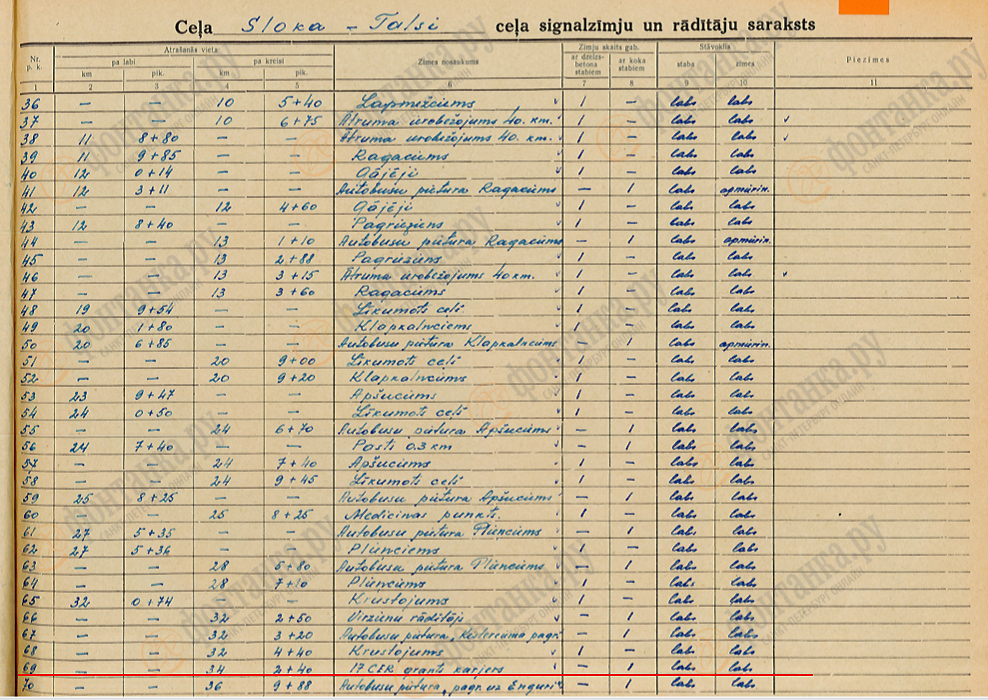 Ceļa Sloka - Talsi ceļa signalzīmju un rādītāju saraksts
Nr. p. k. Atrašanās vieta Zīmes nosaukums Zīmju skaits gab. Stāvoklis Piezīmes
pa labi pa kreisi ar dzelzs-betona stabiem ar koka stabiem staba zīmes
km pik. km pik.
1 2 3 4 5 6 7 8 9 10 11
36 — — 10 5+40 Lapmežciems ✓ 1 — labs labs
37 — — 10 6+75 Ātruma ierobežojums 40 km. ✓ 1 — labs labs ✓
38 11 8+80 — — Ātruma ierobežojums 40 km. ✓ 1 — labs labs ✓
39 11 9+85 — — Ragaciems ✓ 1 — labs labs
40 12 0+14 — — Gājēji ✓ 1 — labs labs
41 12 3+11 — — Autobusu pietura Ragaciems — 1 labs apmierin.
42 — — 12 4+60 Gājēji ✓ 1 — labs labs
43 12 8+40 — — Pagrieziens ✓ 1 — labs labs
44 — — 13 1+10 Autobusu pietura Ragaciems — 1 labs apmierin.
45 — — 13 2+88 Pagrieziens ✓ 1 — labs labs
46 — — 13 3+15 Ātruma ierobežojums 40 km. ✓ 1 — labs labs ✓
47 — — 13 3+60 Ragaciems ✓ 1 — labs labs
48 19 9+54 — — Līkumots ceļš ✓ 1 — labs labs
49 20 1+80 — — Klapkalnciems ✓ 1 — labs labs
50 20 6+85 — — Autobusu pietura Klapkalnciems — 1 labs apmierin.
51 — — 20 9+00 Līkumots ceļš ✓ 1 — labs labs
52 — — 20 9+20 Klapkalnciems ✓ 1 — labs labs
53 23 9+47 — — Apšuciems ✓ 1 — labs labs
54 24 0+50 — — Līkumots ceļš ✓ 1 — labs labs
55 — — 24 6+70 Autobusu pietura Apšuciems ✓ — 1 labs labs
56 24 7+40 — — Pasts 0.3 km ✓ — 1 labs labs
57 — — 24 7+40 Apšuciems ✓ 1 — labs labs
58 — — 24 9+45 Līkumots ceļš ✓ 1 — labs labs
59 25 8+25 — — Autobusu pietura Apšuciems ✓ — 1 labs labs
60 — — 25 8+25 Medicinas punkts. ✓ 1 — labs labs
61 27 5+35 — — Autobusu pietura Plienciems ✓ — 1 labs labs
62 27 5+36 — — Plienciems ✓ 1 — labs labs
63 — — 28 5+80 Autobusu pietura Plienciems ✓ — 1 labs labs
64 — — 28 7+10 Plienciems ✓ 1 — labs labs
65 32 0+74 — — Krustojums ✓ 1 — labs labs
66 — — 32 2+50 Virzienu rādītājs ✓ — 1 labs labs
67 — — 32 3+20 Autobusu pietura, Ķesterciema pagr. — 1 labs labs
68 — — 32 4+40 Krustojums ✓ 1 — labs labs
69 — — 34 2+40 17 CER grants karjers ✓ — 1 labs labs
70 — — 36 9+88 Autobusu pietura, pagr. uz Enguri ✓ — 1 labs labs
фонтанка.ру
САНКТ-ПЕТЕРБУРГ ОНЛАЙН